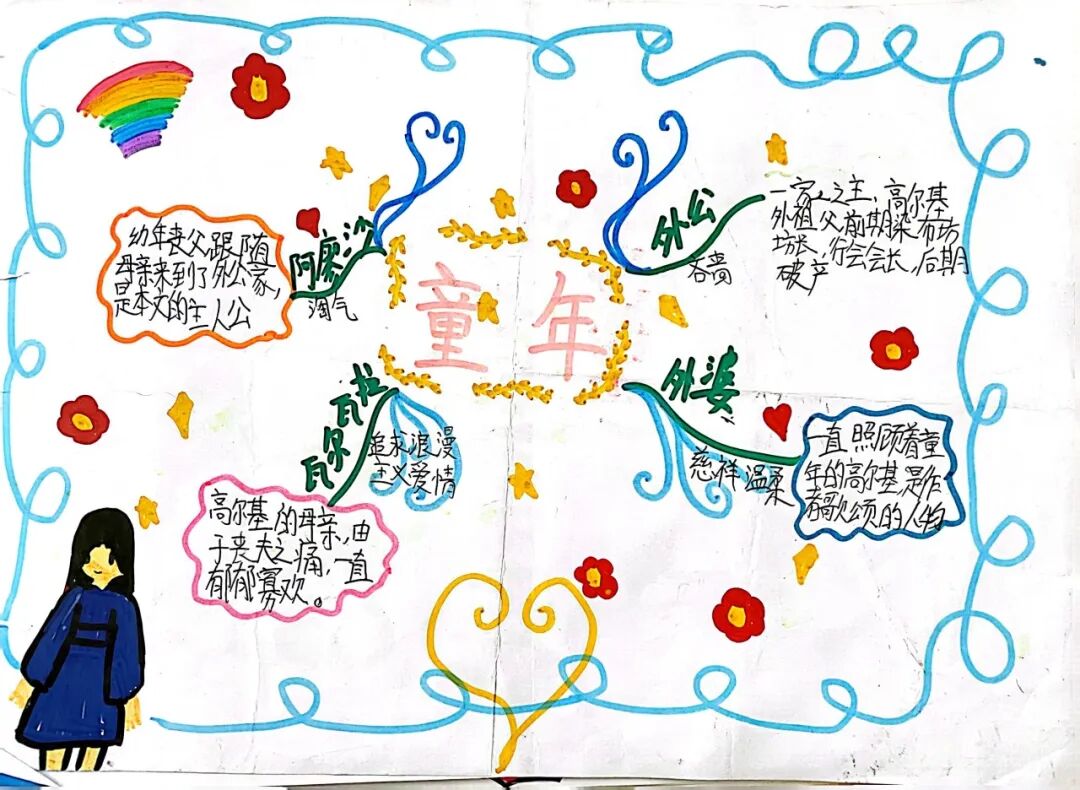 童年
阿廖沙
淘气
幼年丧父,跟随
母亲来到了外公家,
是本文的主人公
外公
吝啬
一家之主,高尔基
外祖父前期染布坊
坊长、行会会长,后期
破产
瓦尔瓦拉
追求浪漫
主义爱情
高尔基的母亲,由
于丧夫之痛,一直
有郁郁寡欢。
外婆
慈祥温柔
一直照顾着童
年的高尔基是作
者歌颂的人物